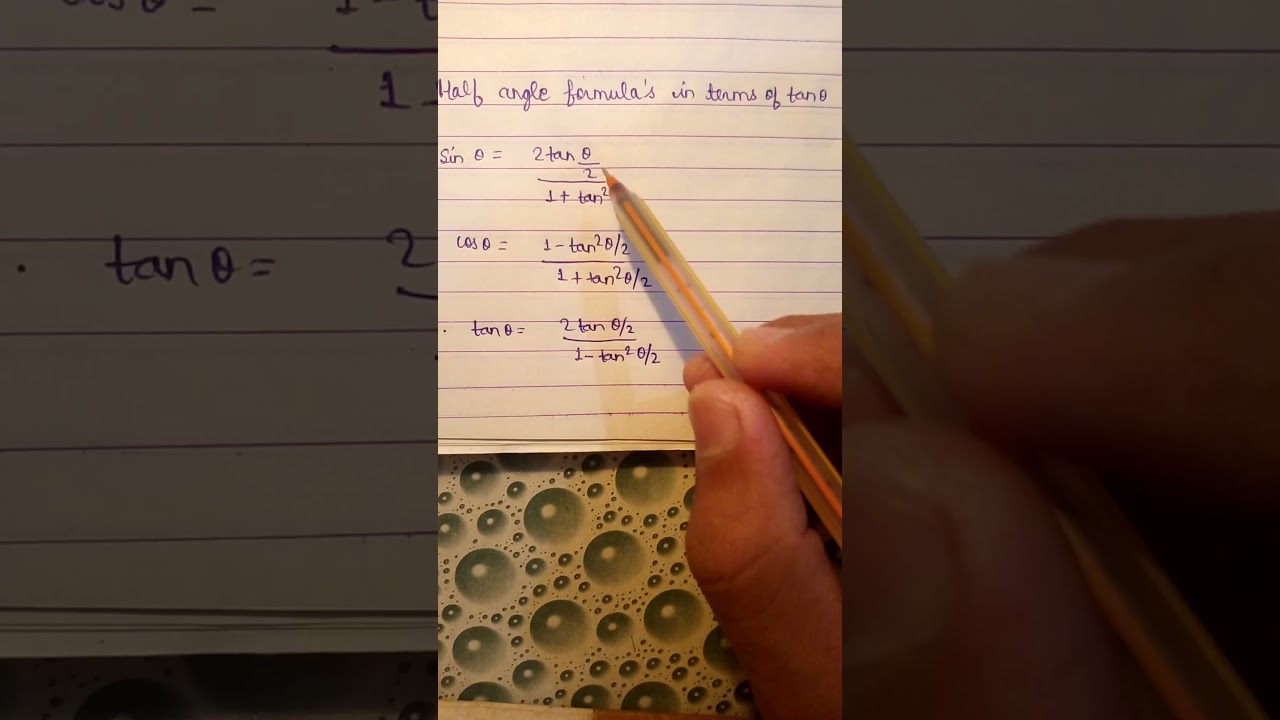 Half angle formula's in terms of tanθ
Sin θ = 2 tan θ/2
1 + tan²
cosθ = 1 - tan²θ/2
1 + tan²θ/2
. tanθ = 2 tan θ/2
1 - tan² θ/2